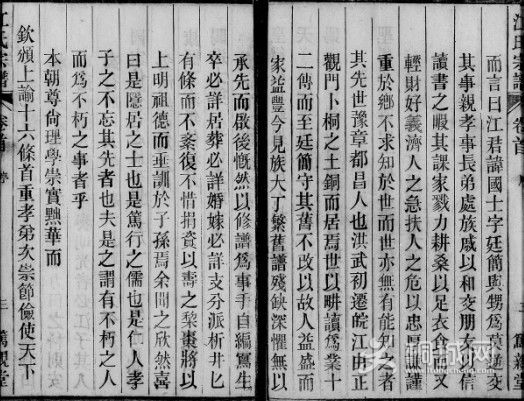 江氏宗譜
卷首
序
篤親堂
而言曰江君諱國士字廷簡與甥爲莫逆交
其事親孝事長弟處族戚以和交朋友以信
讀書之暇其課家戮力耕桑以足衣食又
輕財好義濟人之急扶人之危以忠厚謹
重於鄉不求知於世而世亦無有能知之者
其先世豫章都昌人也洪武初遷皖江中正
觀門卜桐之土銅而居焉世以耕讀爲業十
二傳而至廷簡守其舊不改以故人益盛而
家益豐今見族大丁繁舊譜殘缺深懼無以
承先而啟後慨然以修譜爲事手自編寫生
卒必詳居葬必詳婚嫁必詳支分派析井匕
有條而不紊復不惜捐資以壽之棃棗將以
上明祖德而垂訓於子孫焉余聞之欣然喜
曰是隱居之士也是篤行之儒也是仁人孝
子之不忘其先者也夫是之謂有不朽之人
而爲不朽之事者乎
本朝尊尙理學崇實黜華而
欽頒上諭十六條首重孝弟次崇節儉使天下
江氏宗譜
卷首
序
三
篤親堂
桐城网
www.itongcheng.com